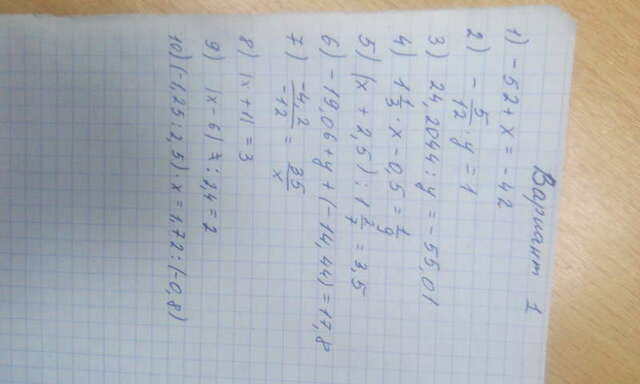 Вариант 1
1) -52+x = -42
2) -5/12 · y = 1
3) 24,2044 : y = -55,01
4) 1 1/3 · x - 0,5 = 1/9
5) (x + 2,5) : 1 2/7 = 3,5
6) -19,06+y+(-14,44)=17,8
7) -4,2/-12 = 35/x
8) |x+1| = 3
9) |x-6| : 2,4=2
10) (-1,25:2,5)·x=1,72:(-0,8)